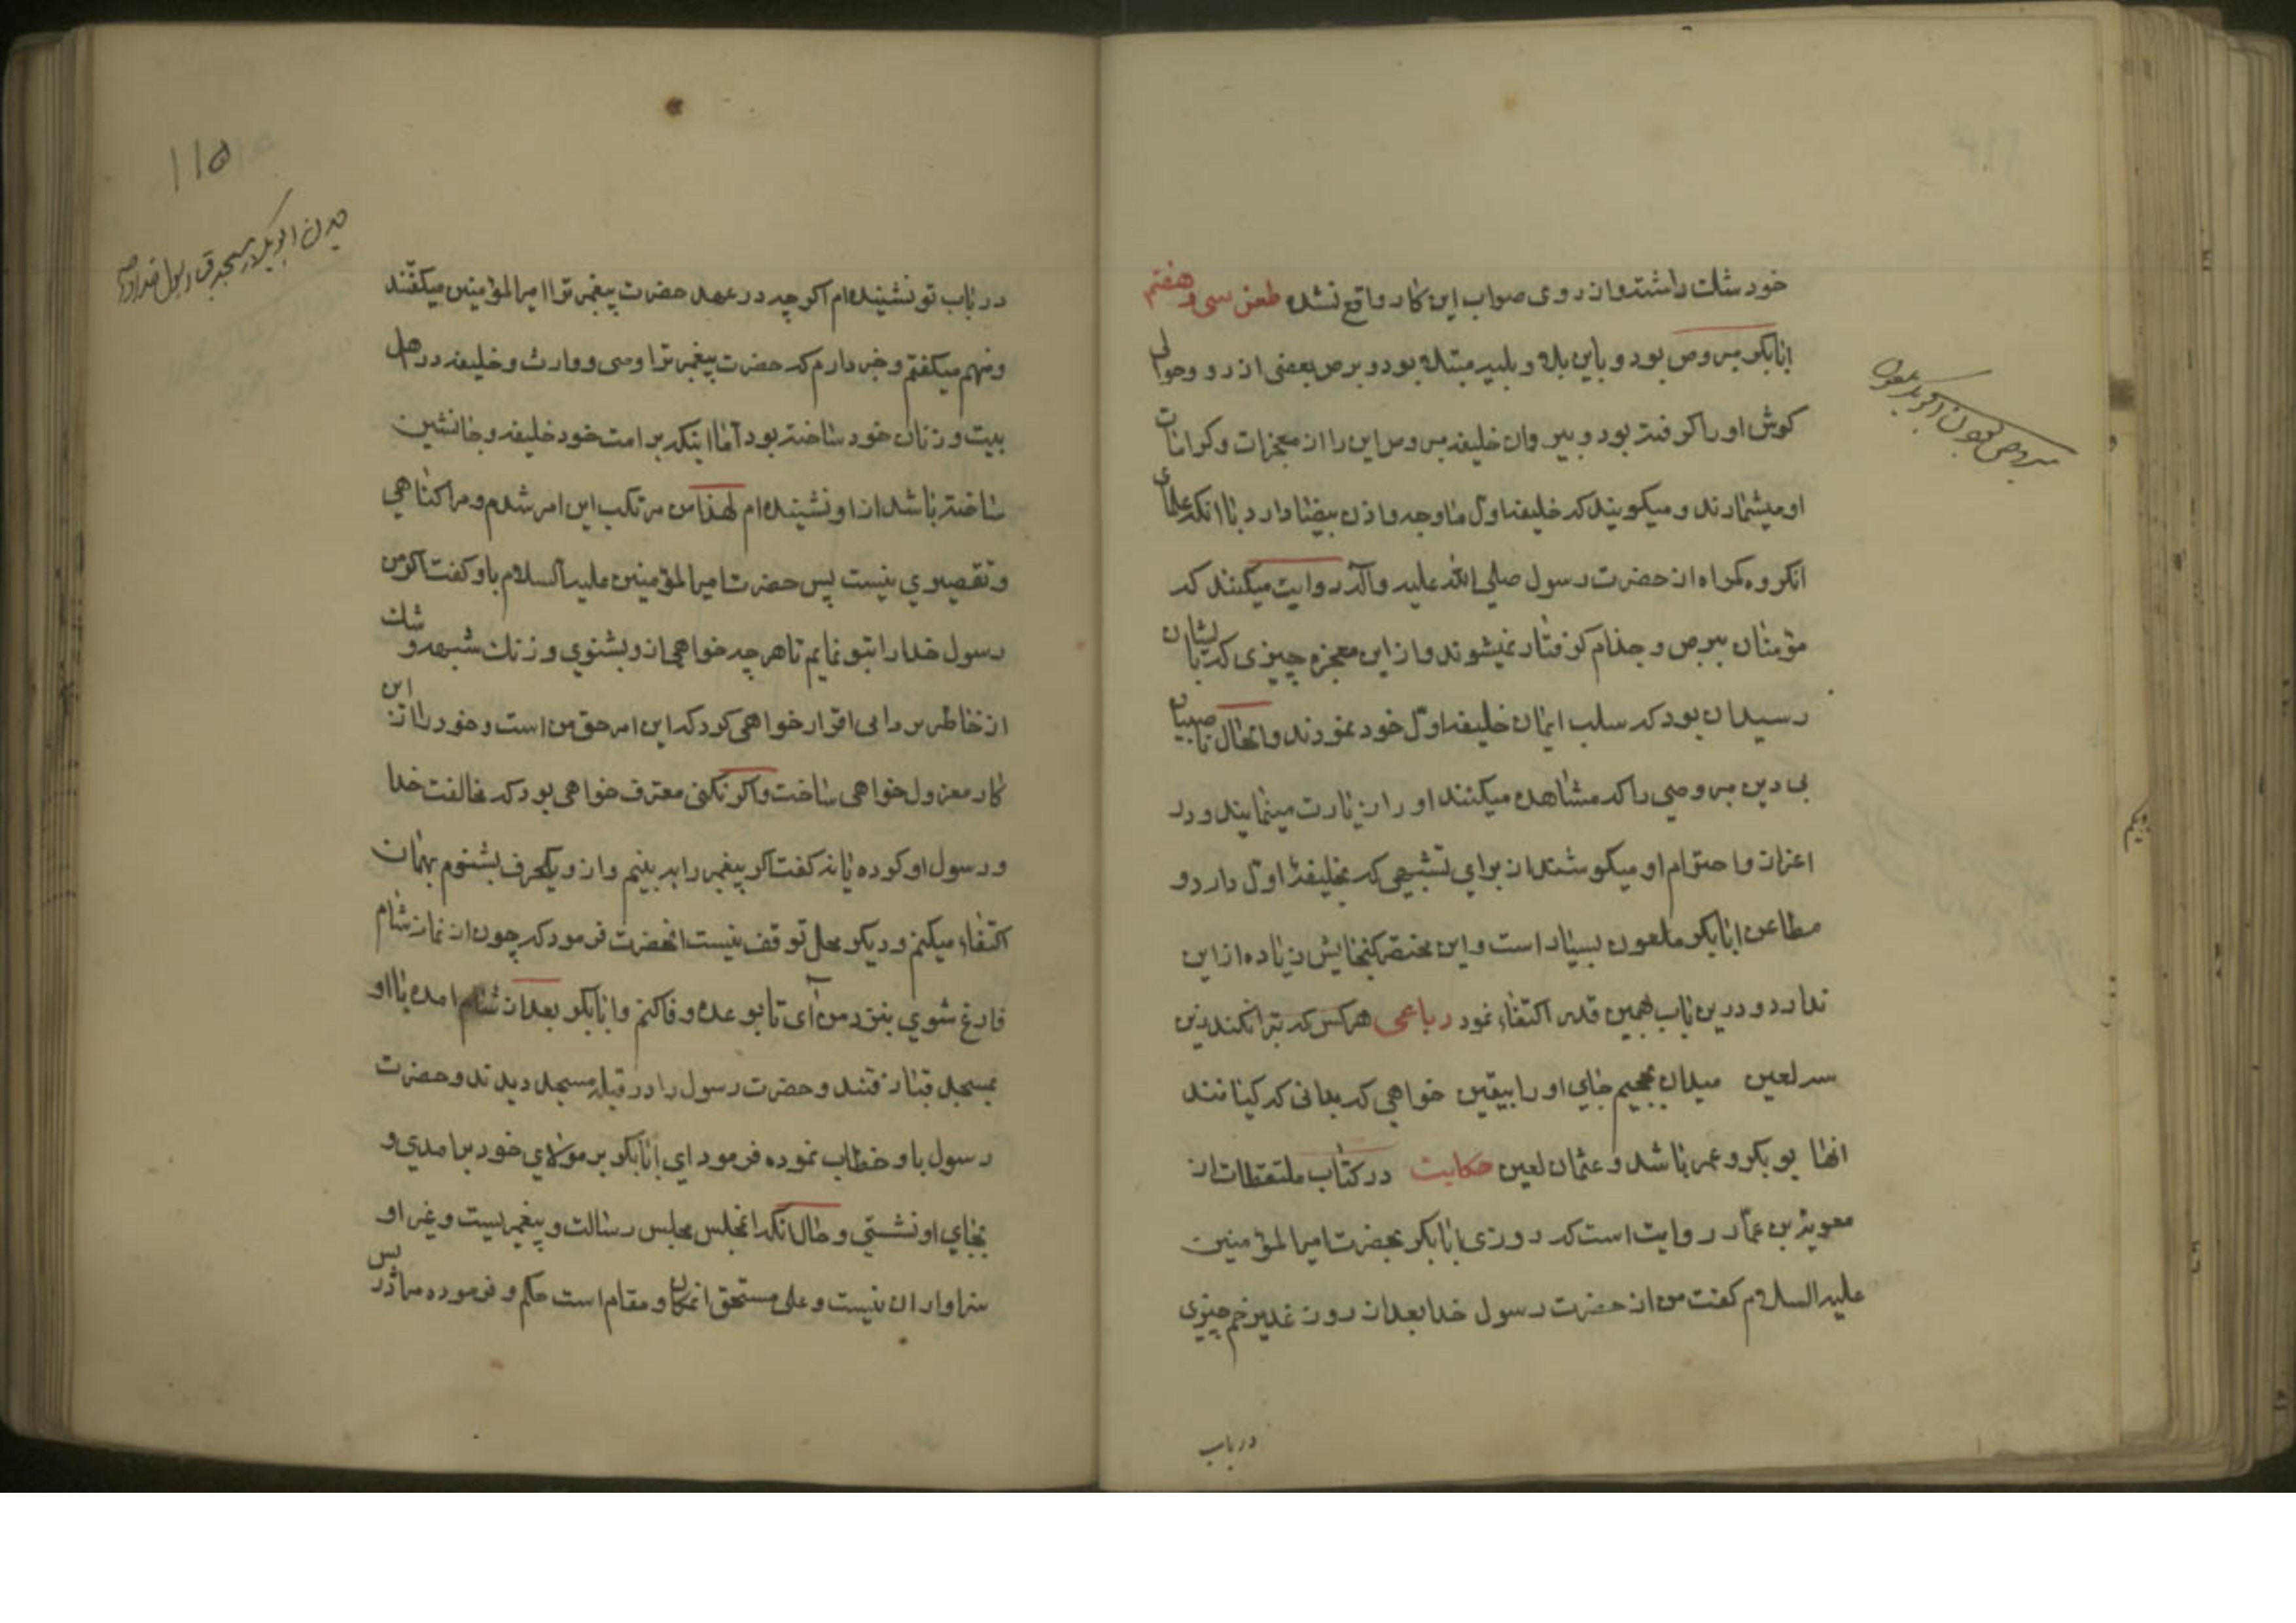 خود شك داشته و از روی صواب این کار واقع نشده طعن سی و هفتم
ابابکر مبروص بود و باین بلاو بلیه مبتلا بود و برص بعضی از رو و حوالی
کوش او را کرفته بود و پیروان خلیفه مبروص این را از معجزات و کرامات
او میشمارند و میکویند که خلیفه اول ما وجه و اذن بیضا دارد با انکه علمای
انکروه کمراه از حضرت رسول صلی الله علیه و آله روایت میکنند که
مؤمنان ببرص و جذام کرفتار نمیشوند و از این معجزه چیزی که بایشان
رسیدان بود که سلب ایمان خلیفه اول خود نمودند و الحال ناصبیان
بی دین مبروصی را که مشاهده میکنند او را زیارت مینمایند و در
اعزاز و احترام او میکوشند از برای تشبیهی که بخلیفهٔ اول دارد و
مطاعن ابابکر ملعون بسیار است و این مختصر کنجایش زیاده از این
ندارد و درین باب بهمین قدر اکتفاء نمود رباعی هر کس که تبرا نکند زین
سه لعین میدان بجحیم جای او را بیقین خواهی که بدانی که کیانند
انها بو بکر و عمر باشد و عثمان لعین حکایت در کتاب ملتقطات از
معویة بن عمار روایت است که روزی ابابکر بحضرت امیر المؤمنین
علیه السلام کفت من از حضرت رسول خدا بعد از روز غدیر خم چیزی
در باب
مبروص بودن ابو بکر ملعون
۱۱۵
دیدن ابو بکر در مسجد قبا رسول خدا را
در باب تو نشنیده ام اکر چه در عهد حضرت پیغمبر ترا امیر المؤمنین میکفتند
و منهم میکفتم و خبر دارم که حضرت پیغمبر ترا وصی و وارث و خلیفه در اهل
بیت و زنان خود ساخته بود اما اینکه بر امت خود خلیفه و جانشین
ساخته باشد از او نشنیده ام لهذا من مرتکب این امر شدم و مرا کناهی
و تقصیری نیست پس حضرت امیر المؤمنین علیه السلام باو کفت اکر من
رسول خدا را بتو نمایم تا هر چه خواهی از و بشنوی و زنك شبهه و شك
از خاطر بردای اقرار خواهی کرد که این امر حق من است و خود را از این
کار معزول خواهی ساخت و اکر نکنی معترف خواهی بود که مخالفت خدا
و رسول او کرده یا نه کفت اکر پیغمبر را به بینم و از و یکحرف بشنوم بهمان
اکتفاء میکنم و دیکر محل توقف نیست انحضرت فرمود که چون از نماز شام
فارغ شوی بنزد من آی تا بوعده وفا کنم و ابابکر بعد از شام امده با او
بمسجد قبا رفتند و حضرت رسول را در قبله مسجد دیدند و حضرت
رسول باو خطاب نموده فرمود ای ابابکر بر مولای خود برامدی و
بجای او نشستی و حال انکه انمجلس مجلس رسالت و پیغمبریست و غیر او
سزاوار ان نیست و علی مستحق انمکان و مقام است حکم و فرموده مرا در پس